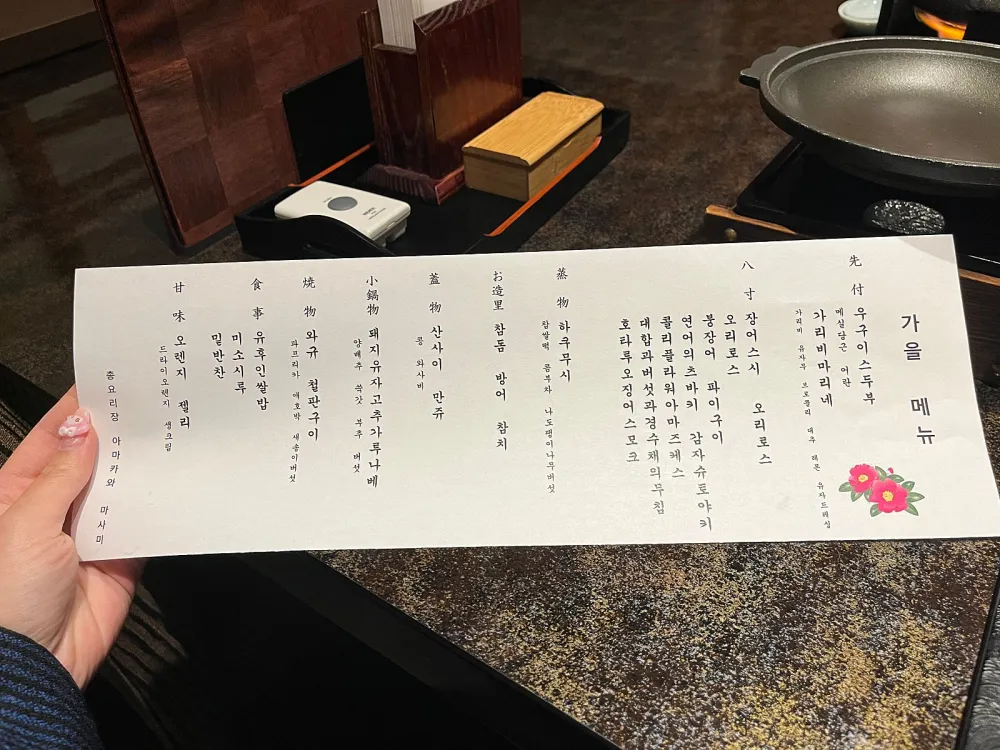 가을 메뉴
先付 우구이스두부
매실당근 어란
가리비마리네
가리비 유자무 브로콜리 대추 레몬 유자드레싱
八寸 장어스시 오리로스
오리로스
붕장어 파이구이
연어의츠바키 감자슈토야키
콜리플라워아마즈케스
대합과버섯과경수채의무침
호타루오징어스모크
蒸物 하쿠무시
찹쌀떡 콩부차 나도팽이나무버섯
お造里 참돔 방어 참치
蓋物 산사이 만쥬
콩 와사비
小鍋物 돼지유자고추가루나베
양배추 쑥갓 부추 버섯
焼物 와규 철판구이
파프리카 애호박 새송이버섯
食事 유후인쌀밥
미소시루
밑반찬
甘味 오렌지 젤리
드라이오렌지 생크림
총요리장 아마카와 마사미